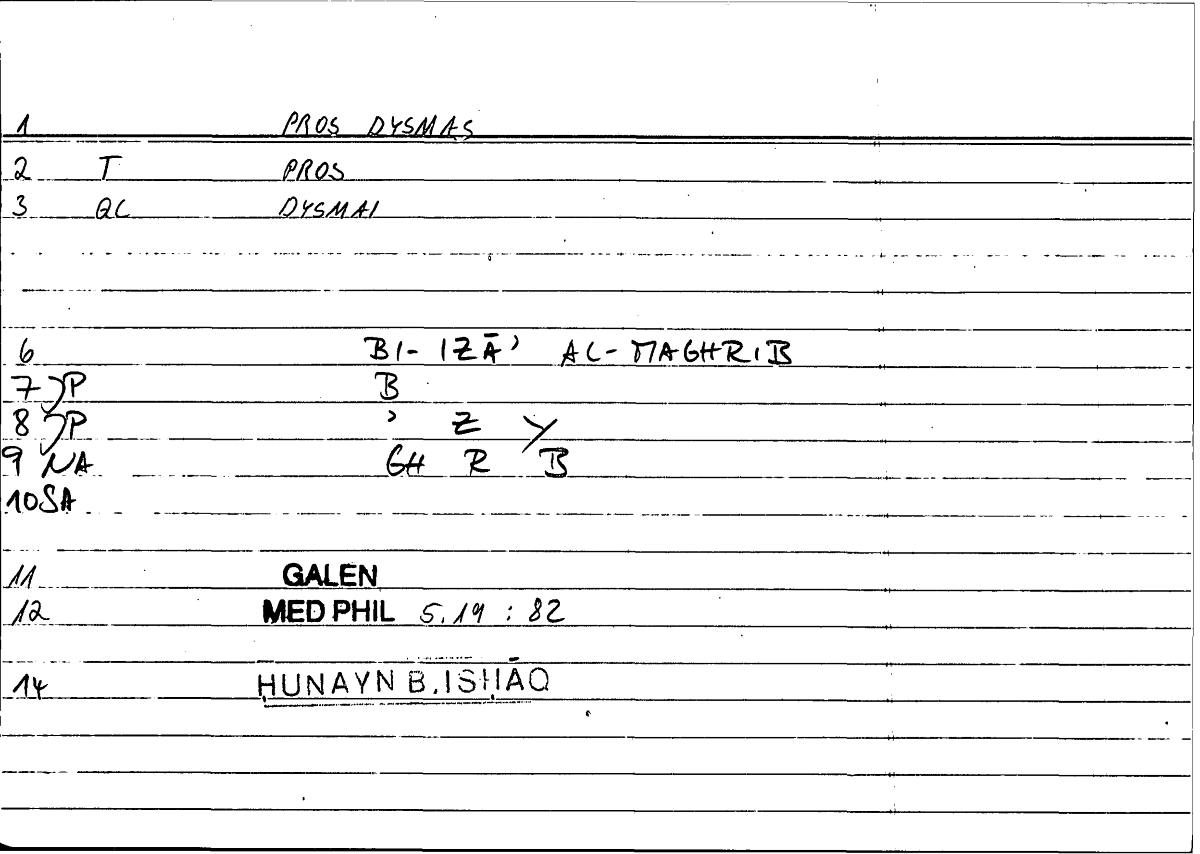 1 PROS DYSMAS
2 T PROS
3 QC DYSMAI
6 BI-IZĀʾ AL-MAGHRIB
7 P B
8 P ʾ Z Y
9 NA GH R B
10 SA
11 GALEN
12 MED PHIL 5.19 : 82
14 ḤUNAYN B. ISḤĀQ